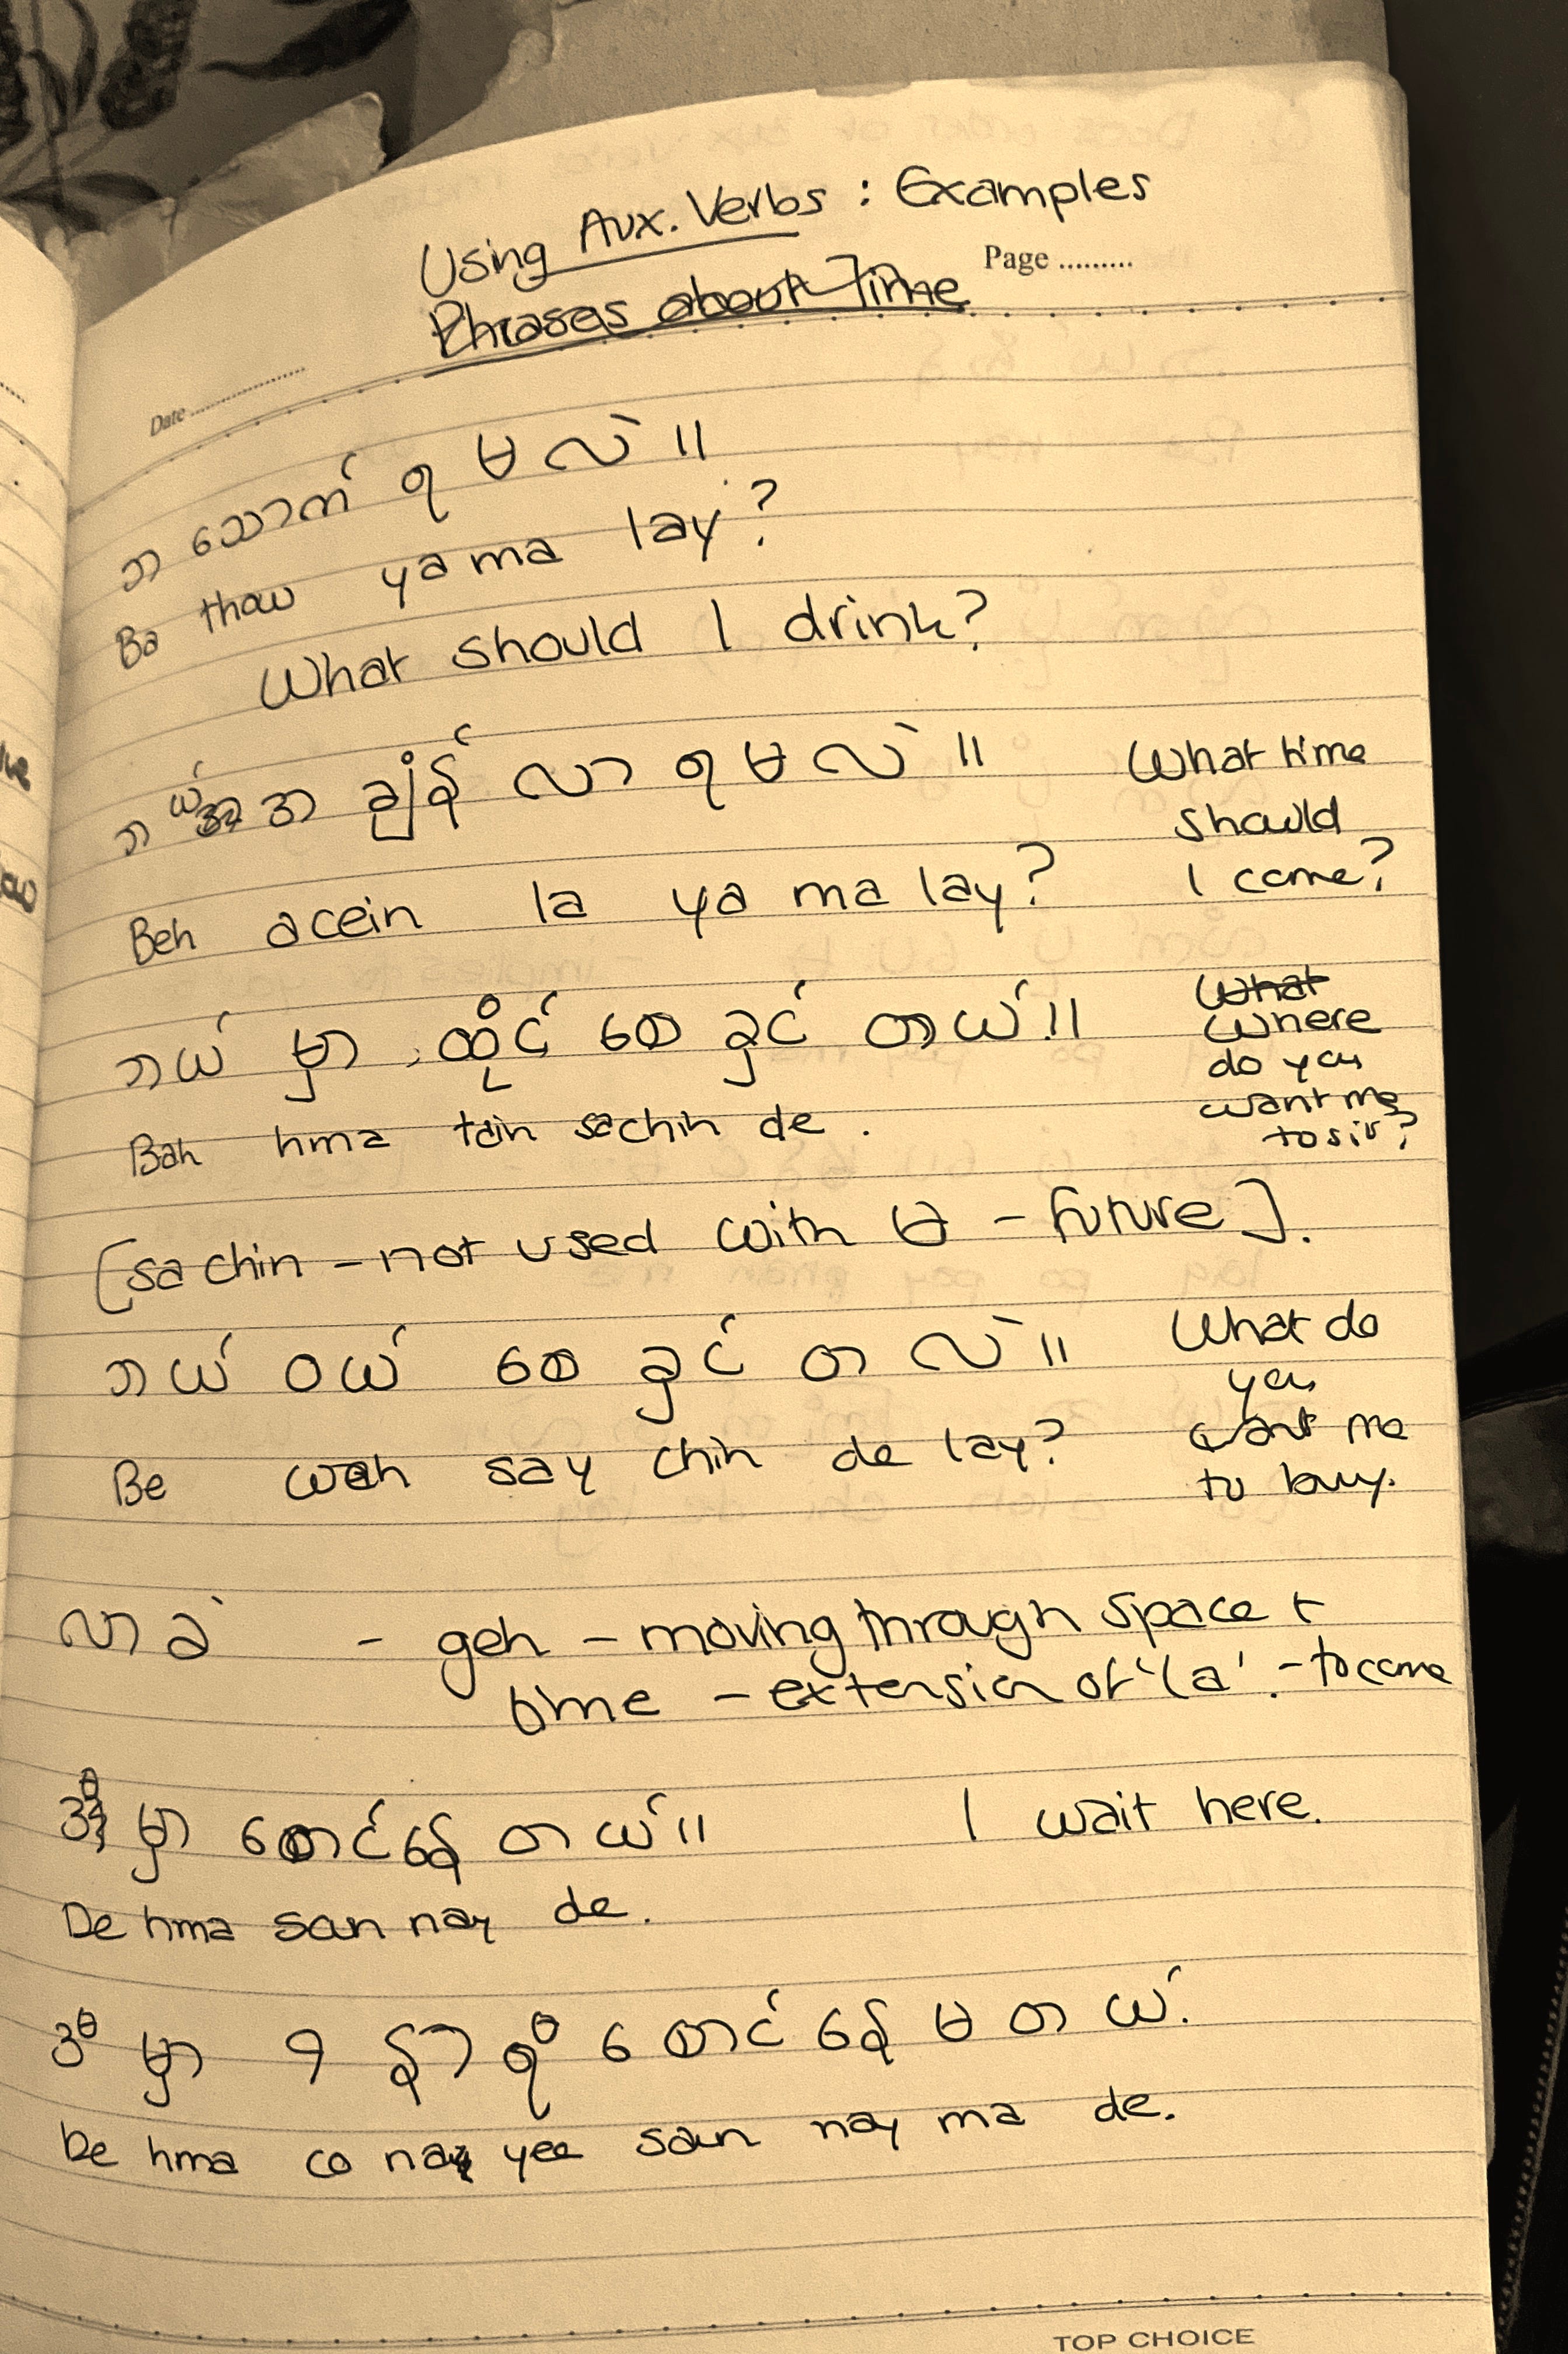 Using Aux. Verbs : Examples
Page .........
Phrases about Time
Date ....................
ဘ သောက် ရ မ လဲ ။
Ba thow ya ma lay?
What should I drink?
ဘယ် အ ချိန် လာ ရ မ လဲ ။ What time
should
Beh acein la ya ma lay? I come?
ဘယ် မှာ ထိုင် စေ ခွင် တယ် ။ What
Where
do you
want me
Bah hma tain sachin de . to sit?
[sa chin - not used with မ - future].
ဘယ် ဝယ် စေ ခွင် တ လဲ ။ What do
you
want me
Be weh say chin de lay? to buy.
လာခဲ - geh - moving through space +
time - extension of 'la'. - to come
ဒီ မှာ စောင်နေ တယ် ။ I wait here.
De hma san nay de.
ဒီ မှာ ၇ နာရီ စောင် နေ မ တယ်.
De hma co nay yee san nay ma de.
TOP CHOICE